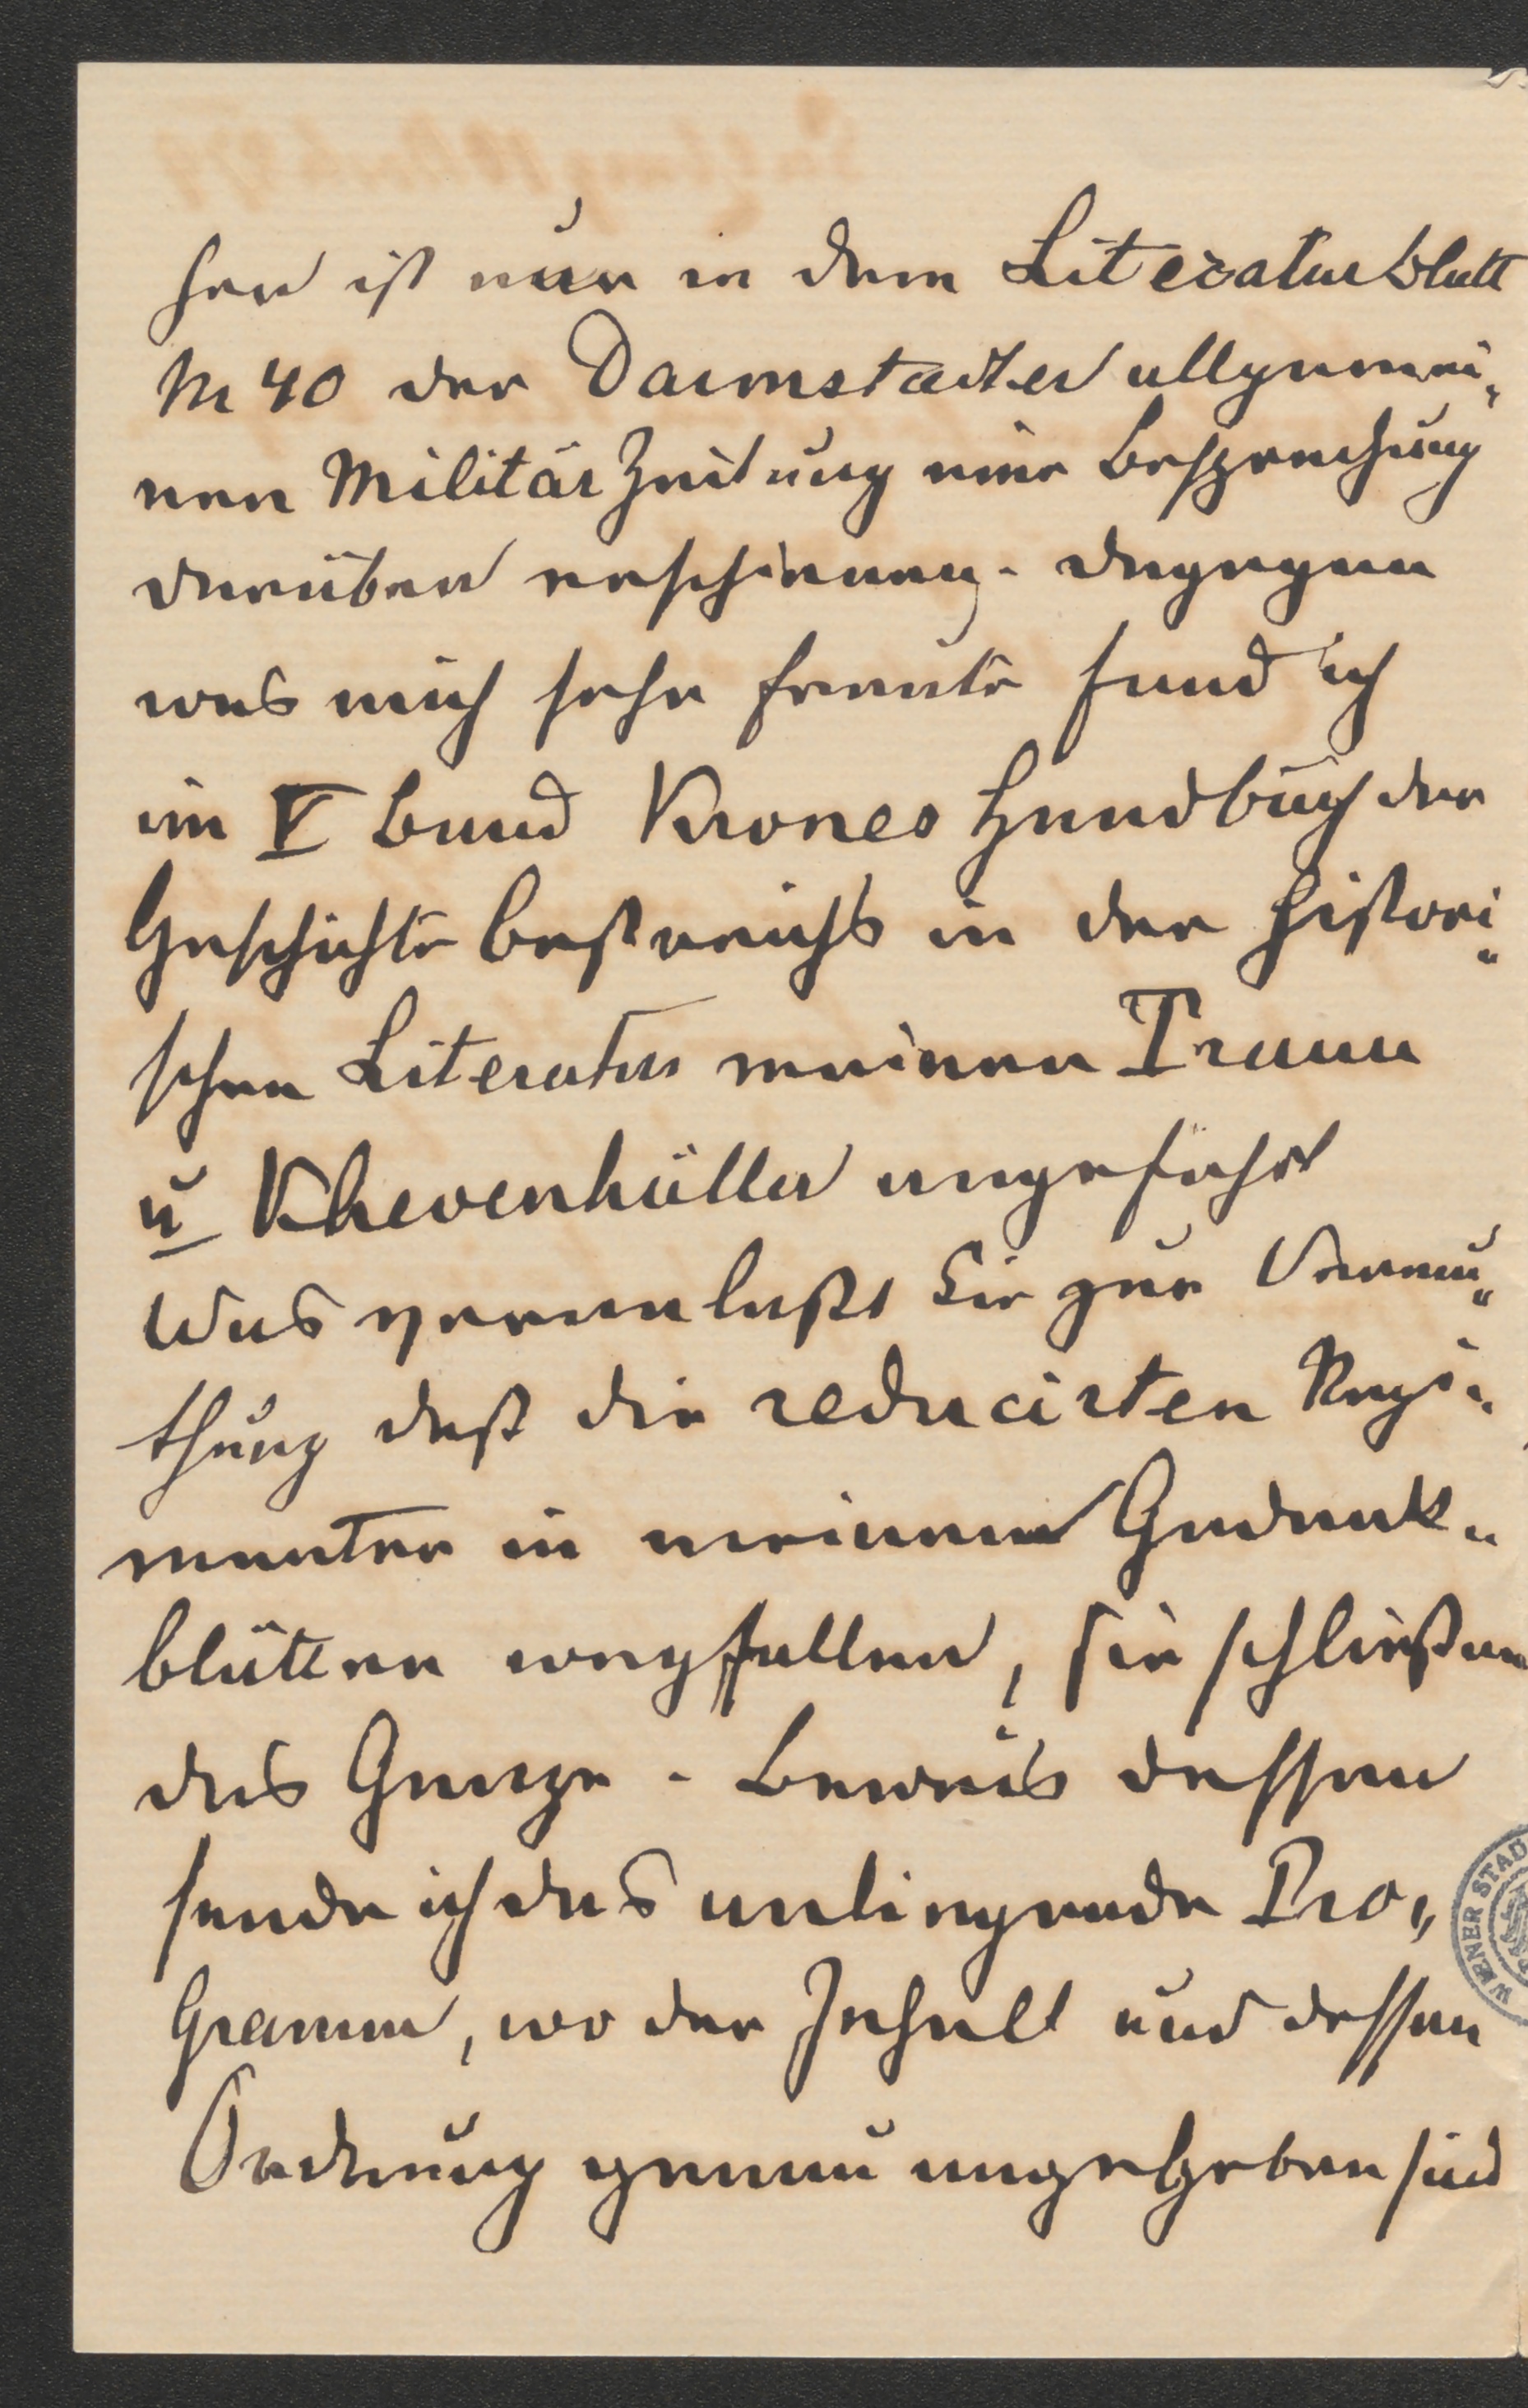 her ist nur in dem Literaturblatt
Nr 40 der Darmstädter allgemei„
nen Militär Zeitung eine Besprechung
darüber erschienen. dagegen
was mich sehr freute fand ich
im V Band Krones Handbuch der
Geschichte Oestreichs in der histori„
schen Literatur meinen Traun
u Khevenhüller angeführt
Was veranlaßt Sie zur Vermu„
thung daß die reducirten Regi„
menter in meinem Gedenk„
blätter wegfallen, sie schließen
das Ganze - Beweis dessen
sende ich das anliegende Pro„
gramm, wo der Inhalt und dessen
Ordnung genau angegeben sind
WIENER STAD